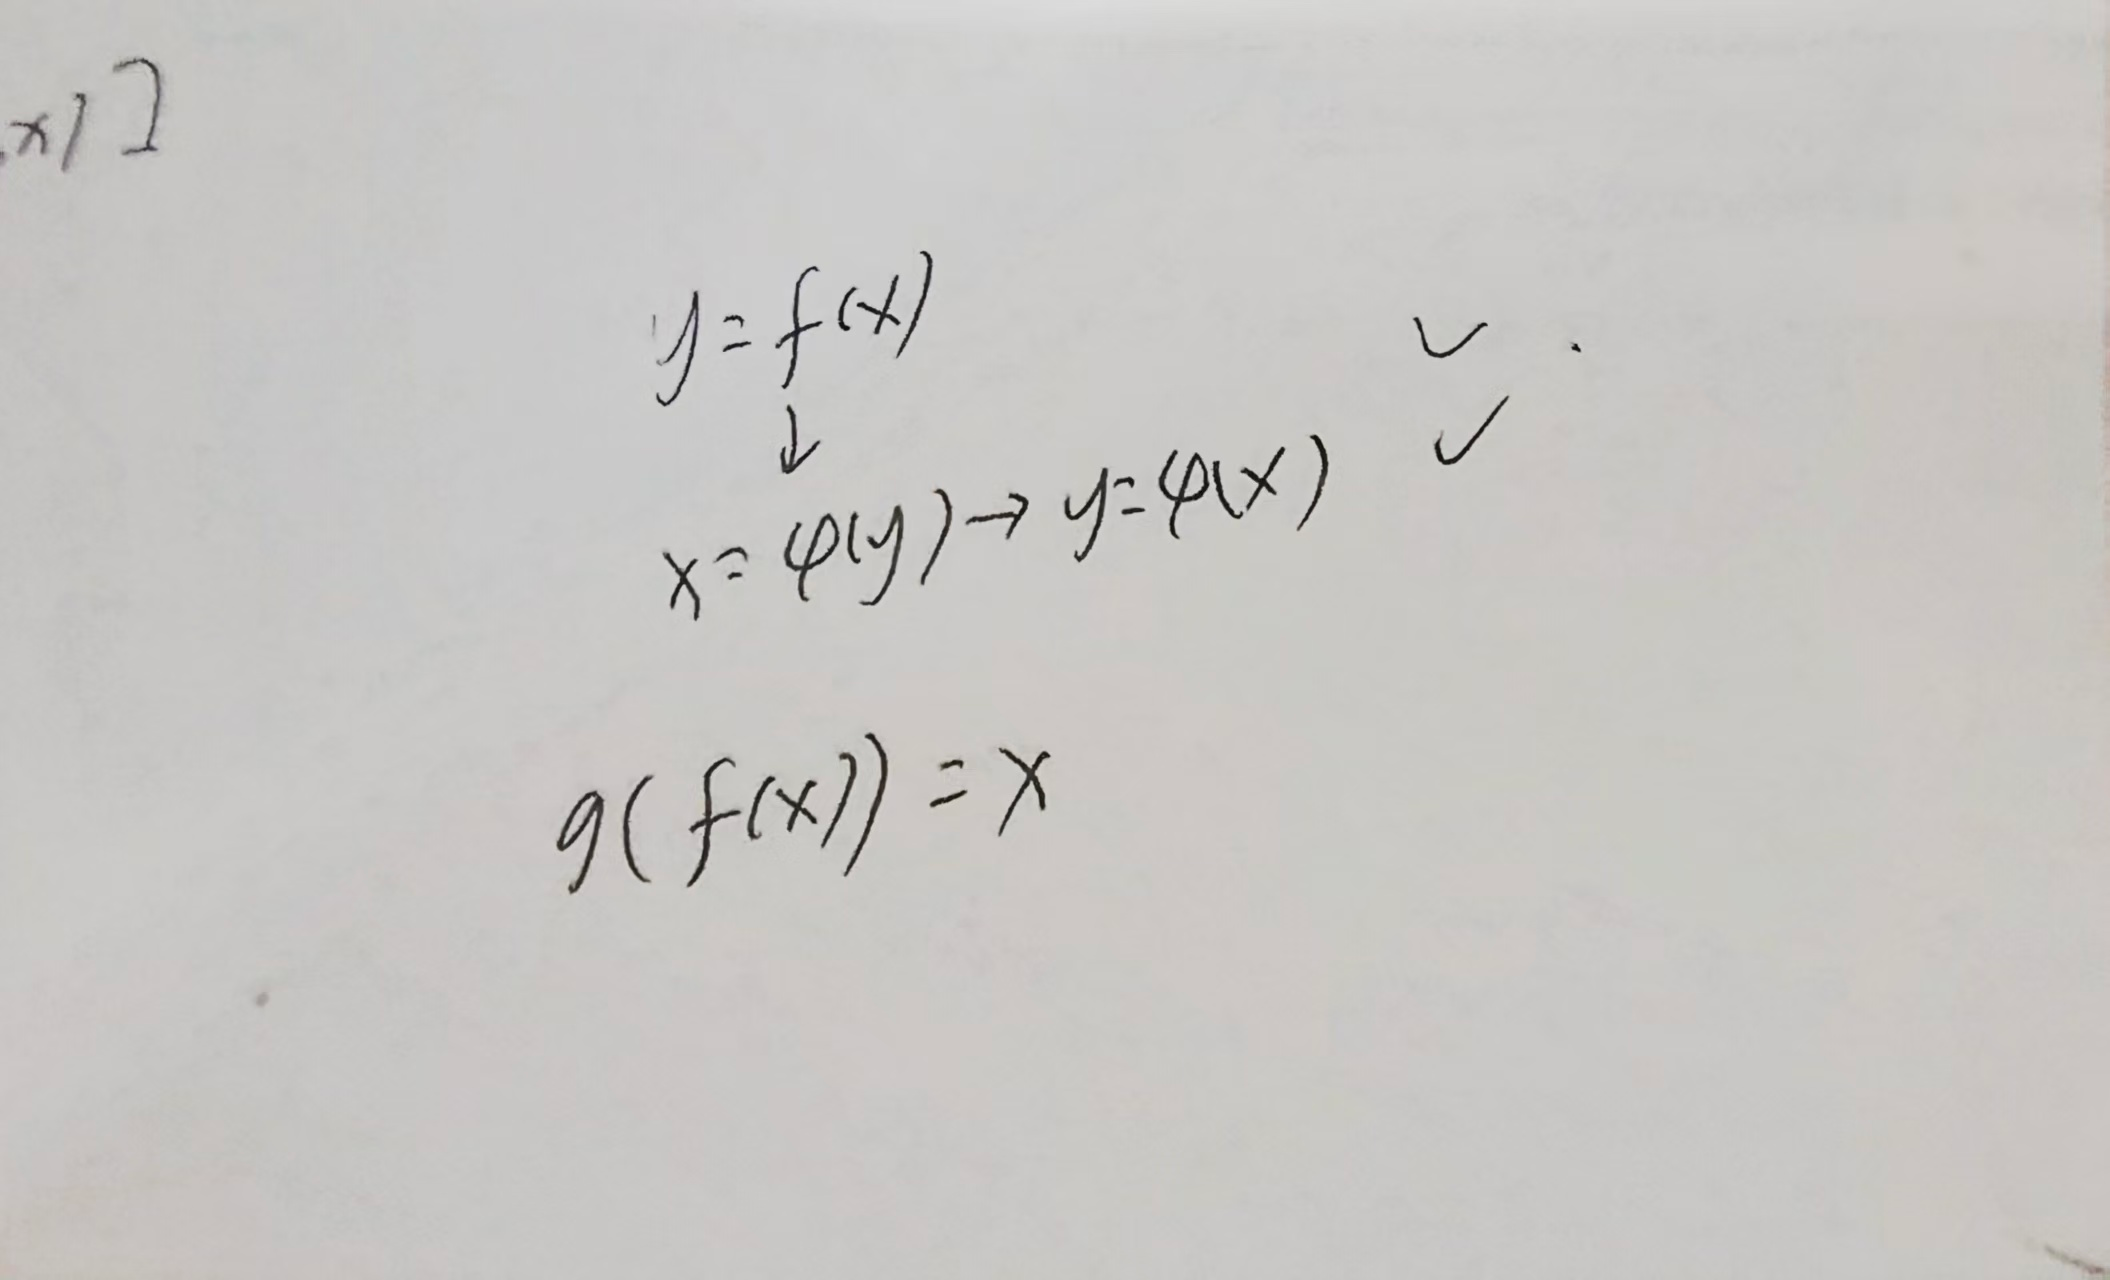 x)]
y=f(x)
↓
x=φ(y)→y=φ(x)
g(f(x))=x